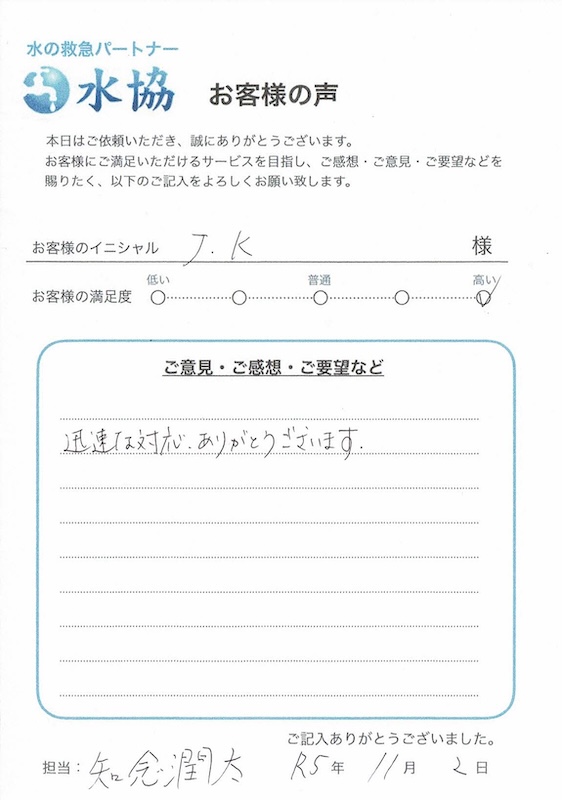 水の救急パートナー
水協 お客様の声
本日はご依頼いただき、誠にありがとうございます。
お客様にご満足いただけるサービスを目指し、ご感想・ご意見・ご要望などを
賜りたく、以下のご記入をよろしくお願い致します。
お客様のイニシャル J.K 様
低い 普通 高い
お客様の満足度
ご意見・ご感想・ご要望など
迅速な対応、ありがとうございます.
ご記入ありがとうございました。
担当：知念潤太 R5年 11月 2日